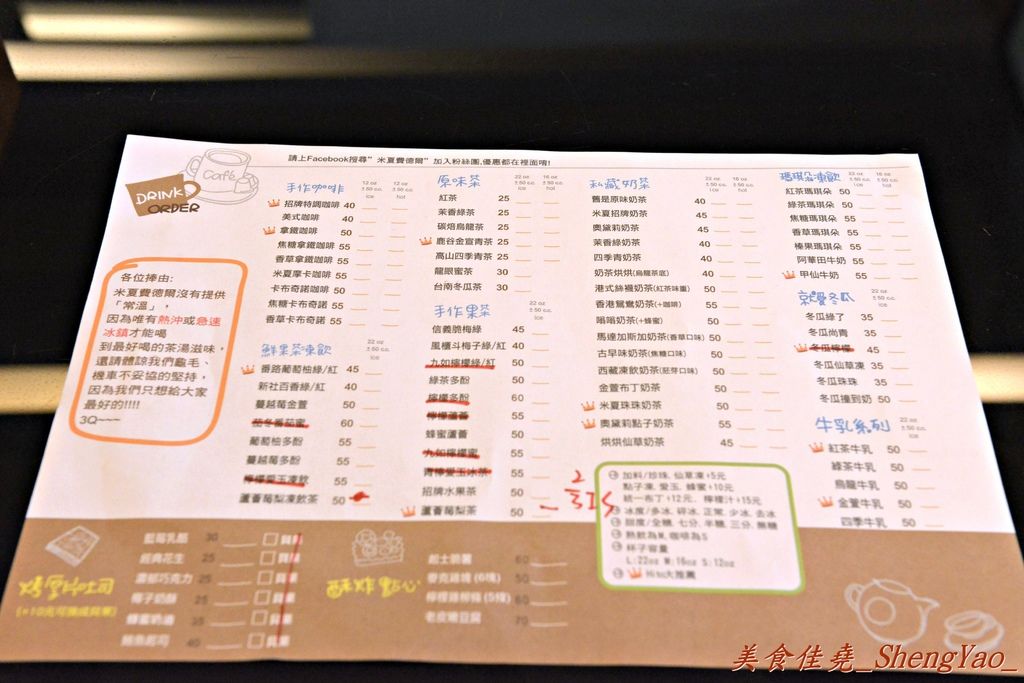 請上Facebook搜尋"米夏費德爾"加入粉絲團,優惠都在裡面唷!
Café
DRINK
ORDER
各位捧由:
米夏費德爾沒有提供
「常溫」,
因為唯有熱沖或急速
冰鎮才能喝
到最好喝的茶湯滋味,
還請體諒我們龜毛、
機車不妥協的堅持,
因為我們只想給大家
最好的!!!!
3Q~~~
手作咖啡 12 oz ±50 c.c. ice 12 oz ±50 c.c. hot
招牌特調咖啡 40
美式咖啡 40
拿鐵咖啡 50
焦糖拿鐵咖啡 55
香草拿鐵咖啡 55
米夏摩卡咖啡 55
卡布奇諾咖啡 50
焦糖卡布奇諾 55
香草卡布奇諾 55
鮮果茶凍飲 22 oz ±50 c.c. ice
番路葡萄柚綠/紅 45
新社百香綠/紅 50
蔓越莓金萱 50
茄冬番茄蜜 60
葡萄柚多酚 55
蔓越莓多酚 55
檸檬愛玉凍飲 55
蘆薈莓梨凍飲茶 50
原味茶 22 oz ±50 c.c. ice 16 oz ±50 c.c. hot
紅茶 25
茉香綠茶 25
碳焙烏龍茶 25
鹿谷金宣青茶 25
高山四季青茶 25
龍眼蜜茶 30
台南冬瓜茶 30
手作果茶 22 oz ±50 c.c. ice
信義脆梅綠 45
風櫃斗梅子綠/紅 40
九如檸檬綠/紅 50
綠茶多酚 50
檸檬多酚 60
檸檬蘆薈 50
蜂蜜蘆薈 50
九如檸檬蜜 55
青檸愛玉冰茶 55
招牌水果茶 50
蘆薈莓梨茶 50
私藏奶茶 22 oz ±50 c.c. ice 16 oz ±50 c.c. hot
舊是原味奶茶 40
米夏招牌奶茶 40
奧黛莉奶茶 45
茉香綠奶茶 40
四季青奶茶 40
奶茶烘烘(烏龍茶底) 40
港式絲襪奶茶(紅茶味重) 50
香港鴛鴦奶茶(+咖啡) 55
嗡嗡奶茶(+蜂蜜) 50
馬達加斯加奶茶(香草口味) 50
古早味奶茶(焦糖口味) 50
西藏凍飲奶茶(胚芽口味) 50
金萱布丁奶茶 50
米夏珠珠奶茶 50
奧黛莉點子奶茶 50
烘烘仙草奶茶 45
瑪琪朵凍飲 22 oz ±50 c.c. ice 16 oz ±50 c.c. hot
紅茶瑪琪朵 50
綠茶瑪琪朵 50
焦糖瑪琪朵 55
香草瑪琪朵 55
榛果瑪琪朵 55
阿華田牛奶 55
甲仙牛奶 55
就愛冬瓜 22 oz ±50 c.c. ice
冬瓜綠了 35
冬瓜尚青 35
冬瓜檸檬 45
冬瓜仙草凍 35
冬瓜珠珠 35
冬瓜撞到奶 50
牛乳系列 22 oz ±50 c.c. ice
紅茶牛乳 50
綠茶牛乳 50
烏龍牛乳 50
金萱牛乳 50
四季牛乳 50
加料/珍珠, 仙草凍+5元
點子凍, 愛玉, 蜂蜜+10元
統一布丁+12元, 檸檬汁+15元
冰度/多冰, 碎冰, 正常, 少冰, 去冰
甜度/全糖, 七分, 半糖, 三分, 無糖
熱飲為M, 咖啡為S
杯子容量
L:22oz M:16oz S:12oz
Hito大推薦
烤厚片吐司
(+10元可換成貝果)
藍莓乳酪 30 貝果
經典花生 25 貝果
濃郁巧克力 25 貝果
椰子奶酥 25 貝果
蜂蜜奶油 35 貝果
鮪魚起司 40 貝果
酥炸點心
起士脆薯 60
麥克雞塊 (6塊) 50
檸檬雞柳條 (5條) 60
老皮嫩豆腐 70
美食佳堯_ShengYao_